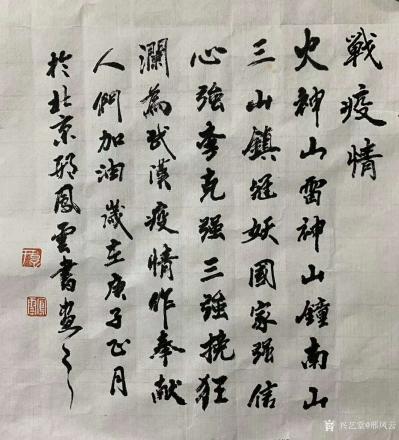 戰疫情
火神山雷神山鐘南山
三山鎮冠妖國家强信
心強李克强三強挽狂
瀾為武漢疫情作奉献
人們加油歲在庚子正月
於北京邢鳳雲書画之
兴艺堂@邢风云